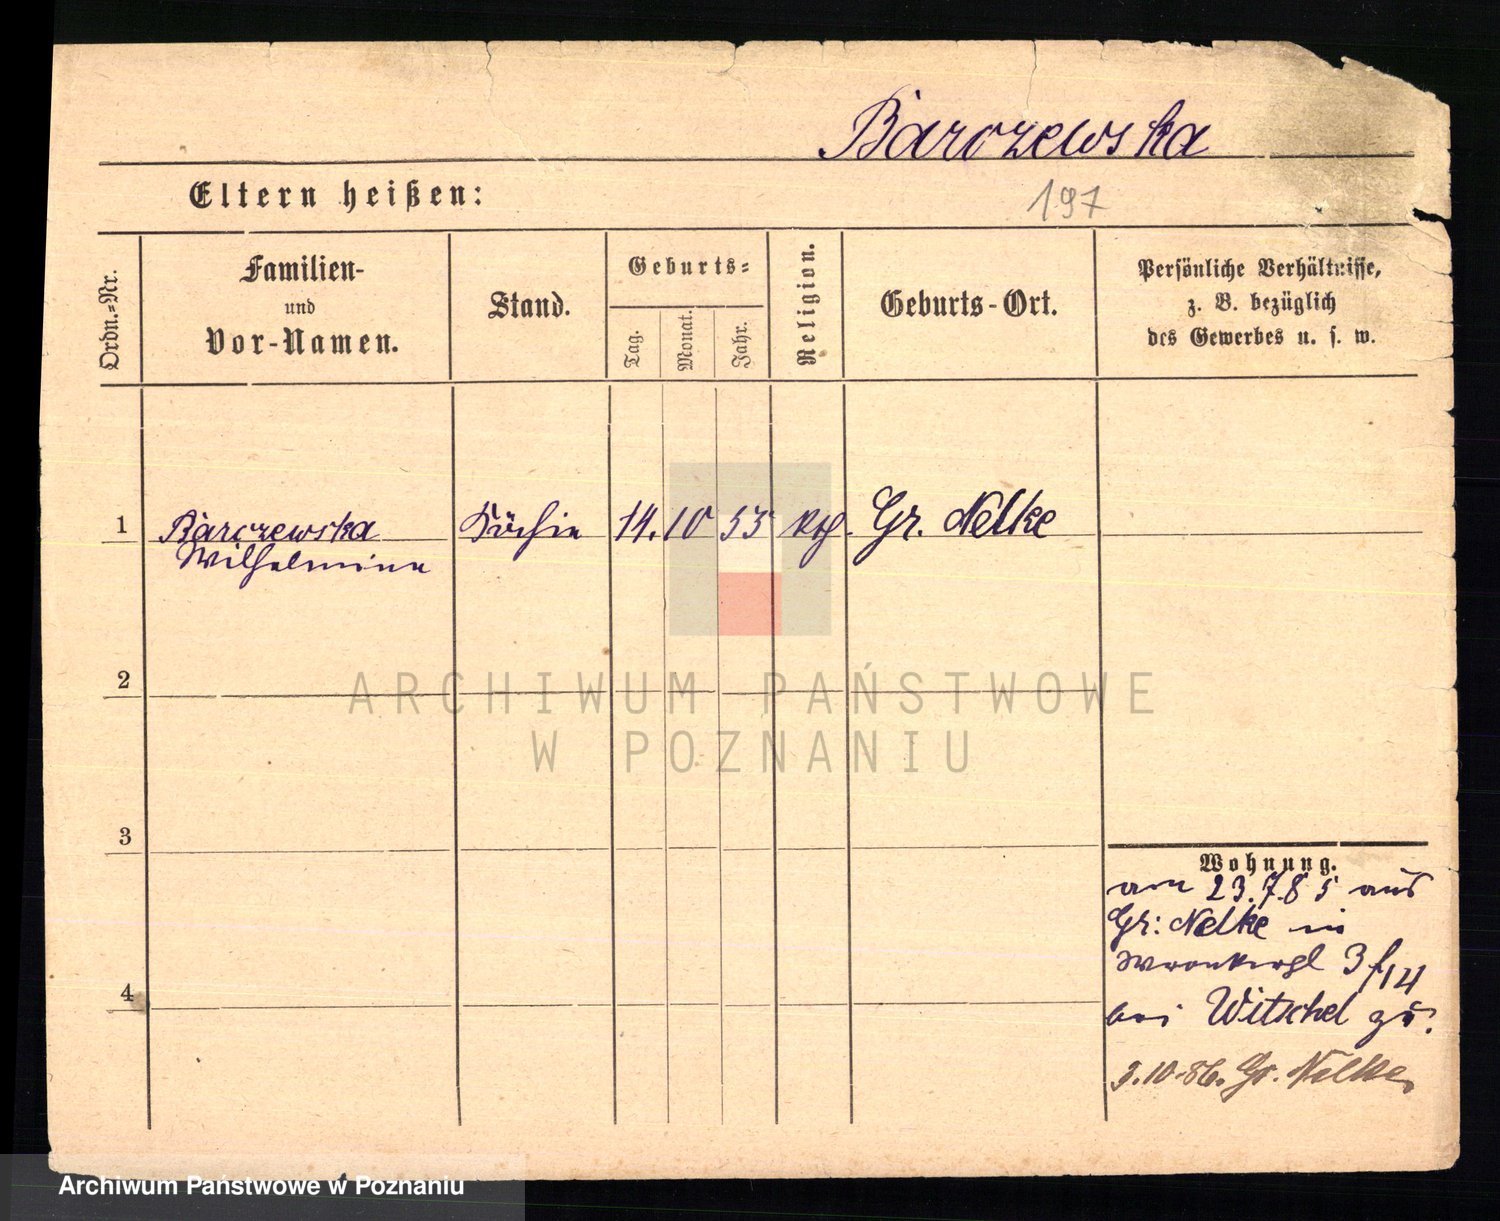 Barczewska
Eltern heißen:
197
Ordn.-Nr.
Familien-
und
Vor-Namen.
Stand.
Geburts-
Tag.
Monat.
Jahr.
Religion.
Geburts-Ort.
Persönliche Verhältnisse,
z. B. bezüglich
des Gewerbes u. s. w.
1
Barczewska
Wilhelmine
Köchin
14. 10 53
kth.
Gr. Nelke
2
ARCHIWUM PAŃSTWOWE
W POZNANIU
3
Wohnung.
am 23.7.85 aus
Gr: Nelke in
3
4
bei Witschel zu.
3.10.86. Gr. Nelke
Archiwum Państwowe w Poznaniu